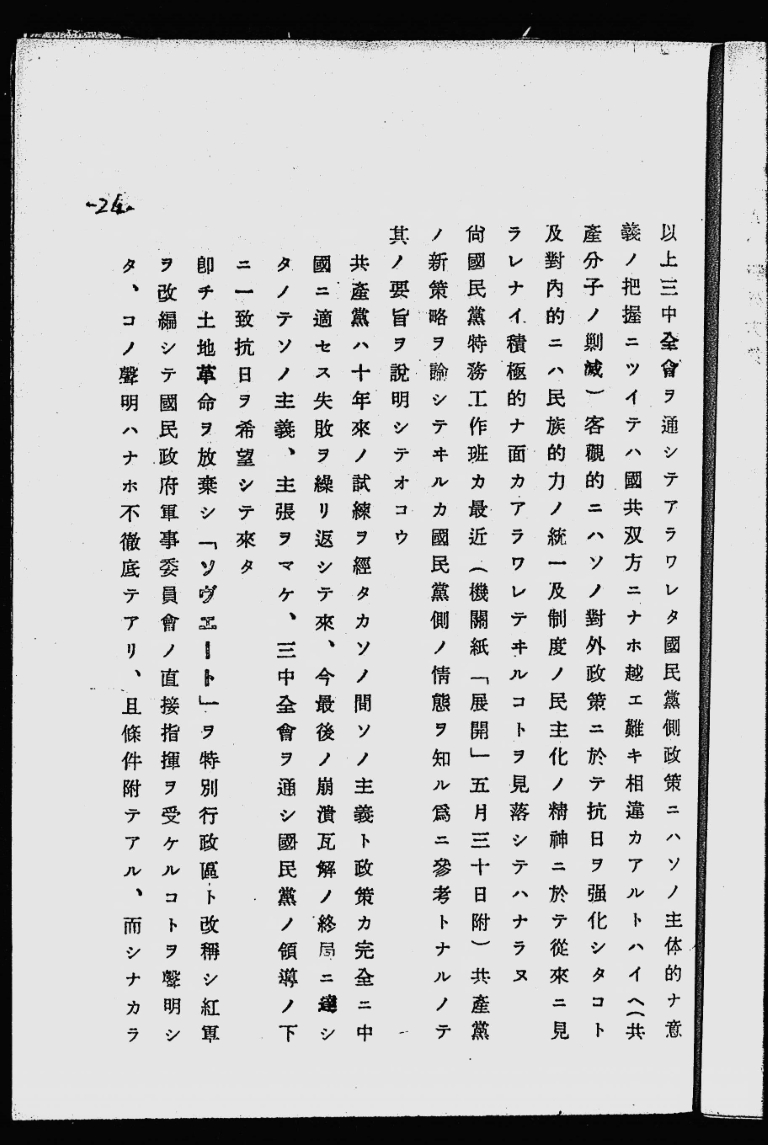 以上三中全會ヲ通シテアラワレタ國民黨側政策ニハソノ主体的ナ意
義ノ把握ニツイテハ國共双方ニナホ越エ難キ相違カアルトハイヘ(共
產分子ノ剿滅)客觀的ニハソノ對外政策ニ於テ抗日ヲ强化シタコト
及對內的ニハ民族的力ノ統一及制度ノ民主化ノ精神ニ於テ從來ニ見
ラレナイ積極的ナ面カアラワレテヰルコトヲ見落シテハナラヌ
尙國民黨特務工作班カ最近(機關紙「展開」五月三十日附)共產黨
ノ新策略ヲ論シテヰルカ國民黨側ノ情態ヲ知ル爲ニ參考トナルノテ
其ノ要旨ヲ說明シテオコウ
共產黨ハ十年來ノ試練ヲ經タカソノ間ソノ主義ト政策カ完全ニ中
國ニ適セス失敗ヲ繰リ返シテ來、今最後ノ崩潰瓦解ノ終局ニ達シ
タノテソノ主義、主張ヲマケ、三中全會ヲ通シ國民黨ノ領導ノ下
ニ一致抗日ヲ希望シテ來タ
卽チ土地革命ヲ放棄シ「ソヴエート」ヲ特別行政區ト改稱シ紅軍
ヲ改編シテ國民政府軍事委員會ノ直接指揮ヲ受ケルコトヲ聲明シ
タ、コノ聲明ハナホ不徹底テアリ、且條件附テアル、而シナカラ